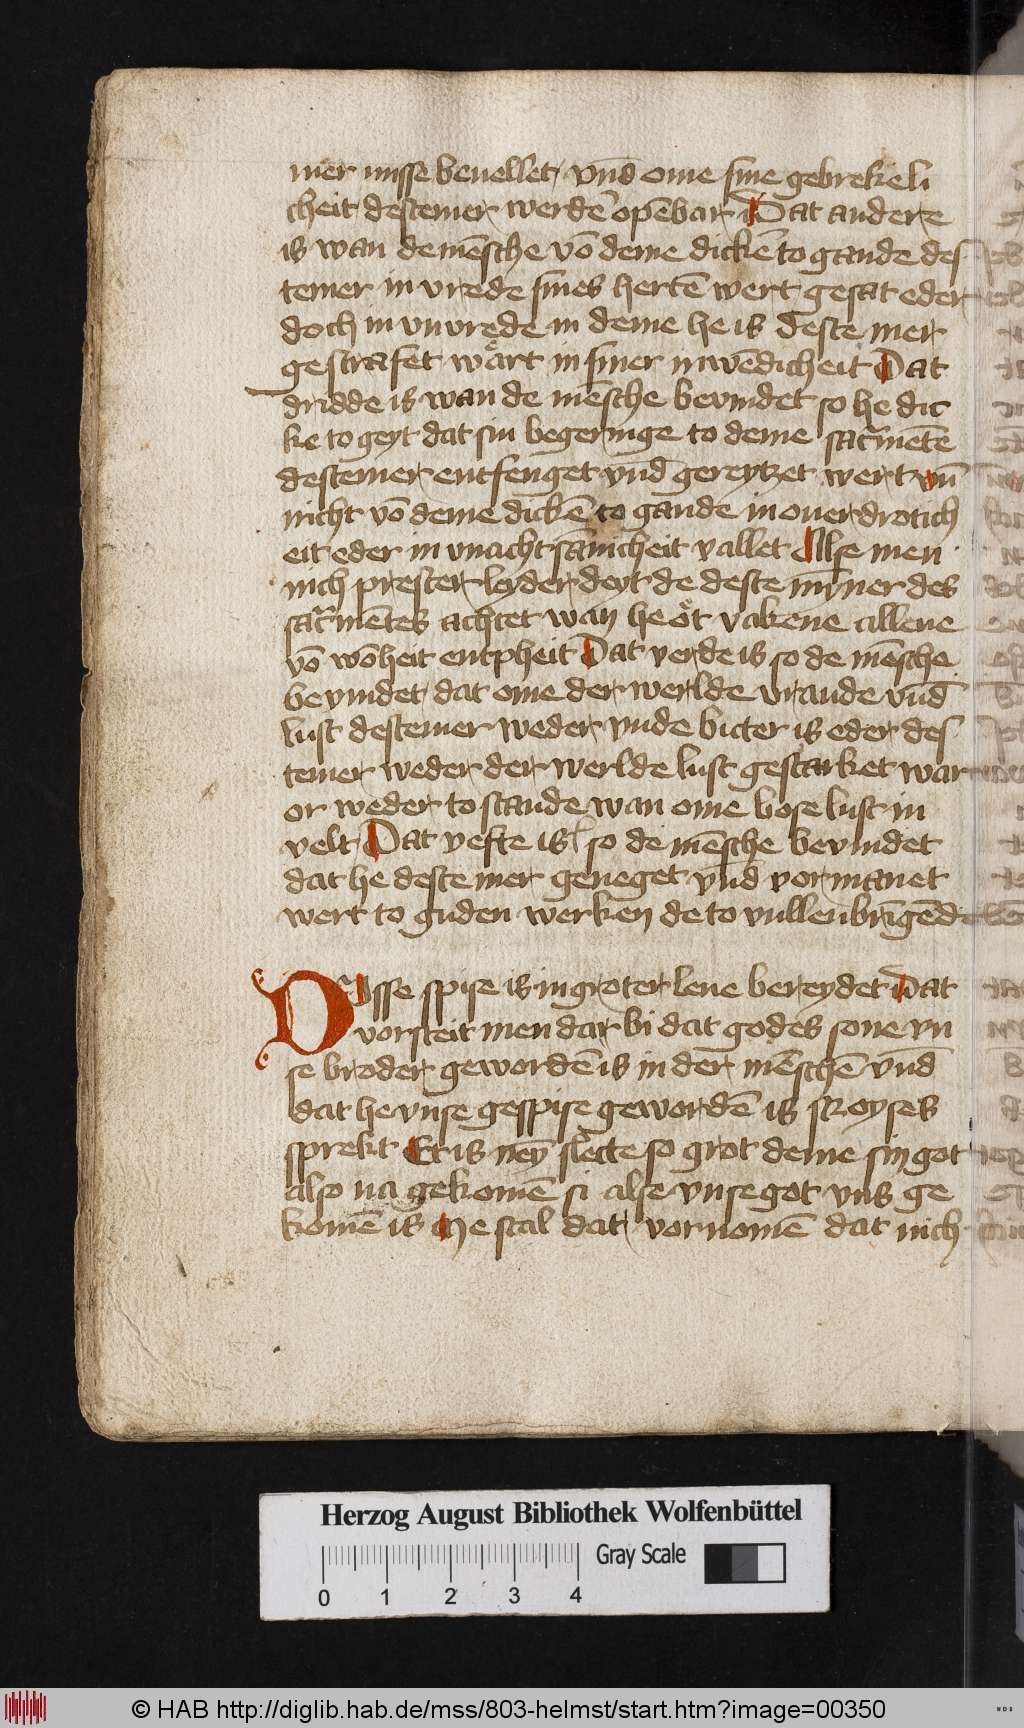 mer misse beuellet vnd ome sine gebrekeli
cheit destemer werdē opēbar Dat andere
is wan de mēsche vō deme dickē to gande des
temer in vrede sines hertē wert gesat eder
doch in vnvrede in deme he is deste mer
gestrafet wart in siner inwēdicheit Dat
dridde is wan de mēsche beuindet so he dic
ke to geyt dat sin begeringe to deme sacͬmēte
destemer entfenget vnd gereytzet wert vn̄
nicht vō deme dickē to gande in ouerdrotich
eit eder in vnachtsāmcheit vallet Alse men
nich prester leyder deyt de deste mȳner des
sacͬmētes achtet wan he öt vakene allene
vō wōheit entpheit Dat verde is so de mēsche
beuindet dat ome der werlde vraude vnd
lust destemer weder vnde bitter is eder des
temer weder der werlde lust gestarket wart
or weder to stande wan ome bose lust in
velt Dat vefte is so de mēsche beuindet
dat he deste mer geneget vnd vormanet
wert to guden werken de to vullenbrīgēde
Dusse spise is in groter leue bereydet Dat
vorsteit men dar bi dat godes sone vn
se broder gewordē is in der mēschē vnd
dat he vnse gespise gewordē is Moyses
sprekt Et is neȳ slecte so grot deme sin got
also na gekomē si alse vnse got vns ge
komē is He scal dat vornomē dat nich
Herzog August Bibliothek Wolfenbüttel
Gray Scale
0 1 2 3 4
© HAB http://diglib.hab.de/mss/803-helmst/start.htm?image=00350